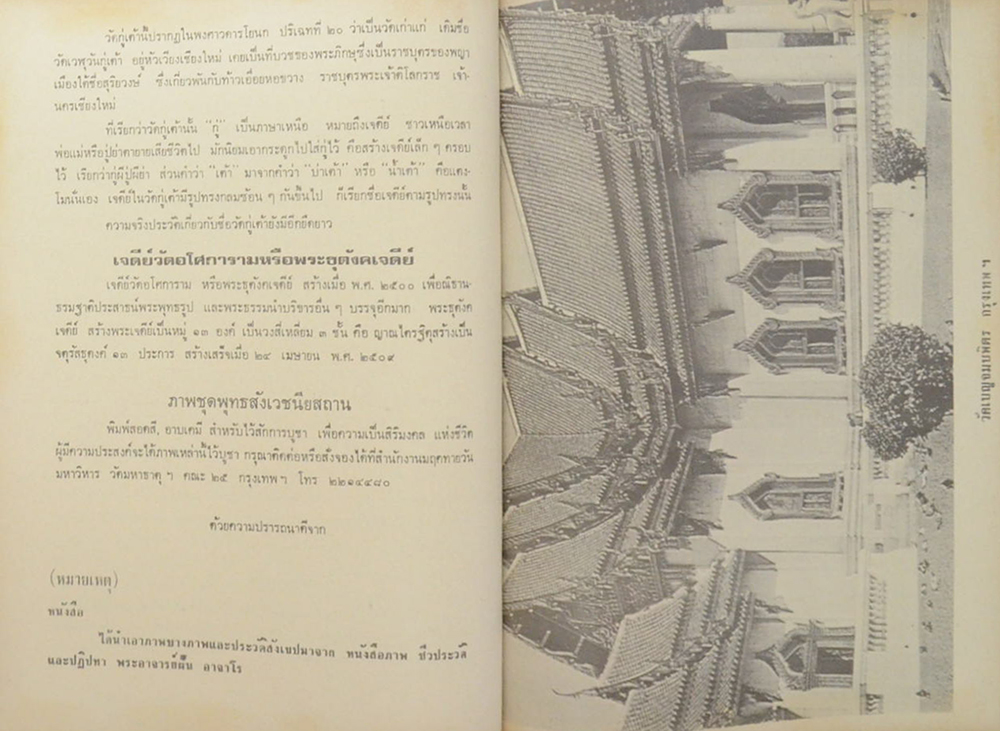 วัดกู่เต้านี้ปรากฏในพงศาวดารโยนก ปริเฉทที่ ๒๐ ว่าเป็นวัดเก่าแก่ เดิมชื่อ
วัดเวฬุวันกู่เต้า อยู่หัวเวียงเชียงใหม่ เคยเป็นที่บวชของพระภิกษุซึ่งเป็นราชบุตรของพญา
เมืองใต้ชื่อสุริยวงษ์ ซึ่งเกี่ยวพันกับท้าวเอื่อยหอขวาง ราชบุตรพระเจ้าติโลกราช เจ้า-
นครเชียงใหม่
ที่เรียกว่าวัดกู่เต้านั้น "กู่" เป็นภาษาเหนือ หมายถึงเจดีย์ ชาวเหนือเวลา
พ่อแม่หรือปู่ย่าตายายเสียชีวิตไป มักนิยมเอากระดูกไปใส่กู่ไว้ คือสร้างเจดีย์เล็ก ๆ ครอบ
ไว้ เรียกว่ากู่ผีปู่ผีย่า ส่วนคำว่า "เต้า" มาจากคำว่า "บ่าเต้า" หรือ "น้ำเต้า" คือแตง-
โมนั่นเอง เจดีย์ในวัดกู่เต้ามีรูปทรงกลมซ้อน ๆ กันขึ้นไป ก็เรียกชื่อเจดีย์ตามรูปทรงนั้น
ความจริงประวัติเกี่ยวกับชื่อวัดกู่เต้ายังมีอีกยืดยาว
เจดีย์วัดอโศการามหรือพระธุตังคเจดีย์
เจดีย์วัดอโศการาม หรือพระธุตังคเจดีย์ สร้างเมื่อ พ.ศ. ๒๕๐๐ เพื่อณิธาน-
ธรรมฐาติประสาธน์พระพุทธรูป และพระธรรมนำบริขารอื่น ๆ บรรจุอีกมาก พระธุตังค
เจดีย์ สร้างพระเจดีย์เป็นหมู่ ๑๓ องค์ เป็นวงสี่เหลี่ยม ๓ ชั้น คือ ญาณไตรฐิตุสร้างเป็น
จตุรัสธุตงค์ ๑๓ ประการ สร้างเสร็จเมื่อ ๒๔ เมษายน พ.ศ. ๒๕๐๙
ภาพชุดพุทธสังเวชนียสถาน
พิมพ์สอดสี, อาบเคมี สำหรับไว้สักการบูชา เพื่อความเป็นสิริมงคล แห่งชีวิต
ผู้มีความประสงค์จะได้ภาพเหล่านี้ไว้บูชา กรุณาติดต่อหรือสั่งจองได้ที่สำนักงานมฤคทายวัน
มหาวิหาร วัดมหาธาตุ ฯ คณะ ๒๕ กรุงเทพ ฯ โทร ๒๒๑๔๔๘๐
ด้วยความปรารถนาดีจาก
(หมายเหตุ)
หนังสือ
ได้นำเอาภาพบางภาพและประวัติสังเขปมาจาก หนังสือภาพ ชีวประวัติ
และปฏิปทา พระอาจารย์ฝั้น อาจาโร
วัดเบญจมบพิตร กรุงเทพ ฯ